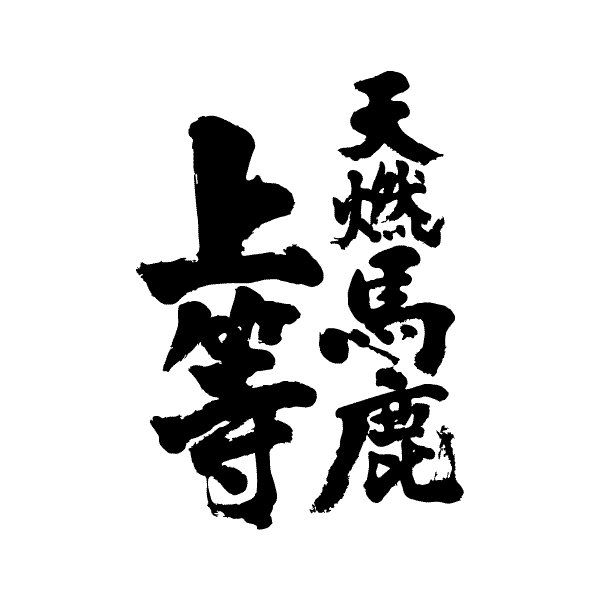 天燃馬鹿
上等